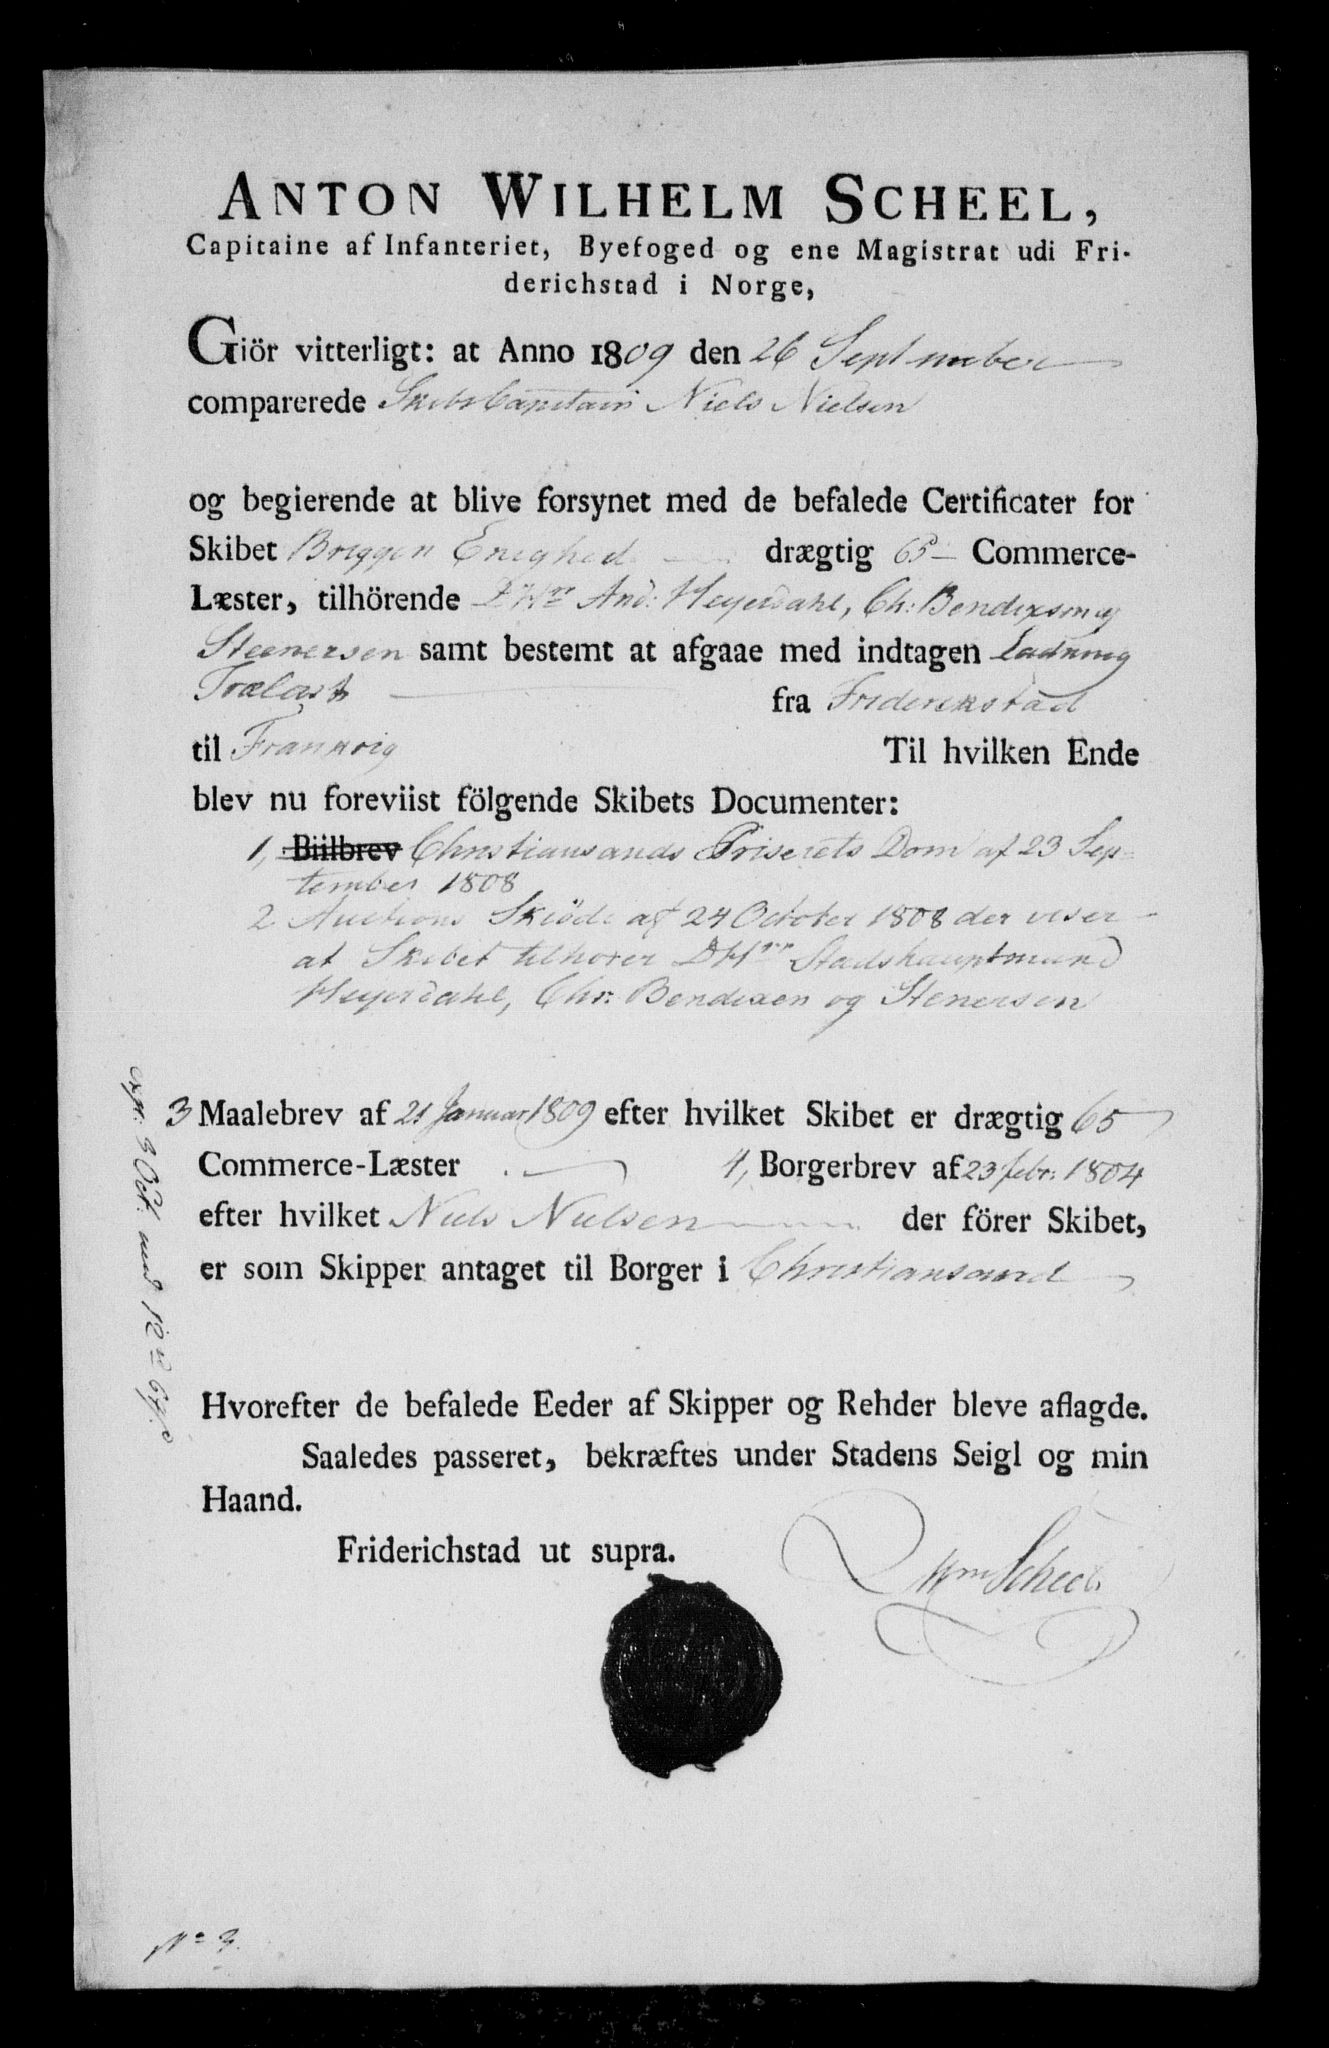 ANTON WILHELM SCHEEL,
Capitaine af Infanteriet, Byefoged og ene Magistrat udi Fri-
derichstad i Norge,
Giör vitterligt: at Anno 1809 den 26 September
comparerede Skibs Capitain Niels Nielsen
og begierende at blive forsynet med de befalede Certificater for
Skibet Briggen Enighed drægtig 65 Commerce-
Læster, tilhörende DHrr And: Heyerdahl, Ch: Bendixen og
Steenersen samt bestemt at afgaae med indtagen Ladning
Trælast fra Friderikstad
til Frankrig Til hvilken Ende
blev nu foreviist fölgende Skibets Documenter:
1, Biilbrev Christiansands Priserets Dom af 23 Sep=
tember 1808
2 Auctions Skiöde af 24 October 1808 der viser
at Skibet tilhorer DHrr Stadshauptmand
Heyerdahl, Chr: Bendixen og Stenersen
3 Maalebrev af 21 Januar 1809 efter hvilket Skibet er drægtig 65
Commerce-Læster 4, Borgerbrev af 23 febr: 1804
efter hvilket Niels Nielsen der förer Skibet,
er som Skipper antaget til Borger i Christiansand
Hvorefter de befalede Eeder af Skipper og Rehder bleve aflagde.
Saaledes passeret, bekræftes under Stadens Seigl og min
Haand.
Friderichstad ut supra.
Scheel
exp: 3 Oct. med 12
No 3.